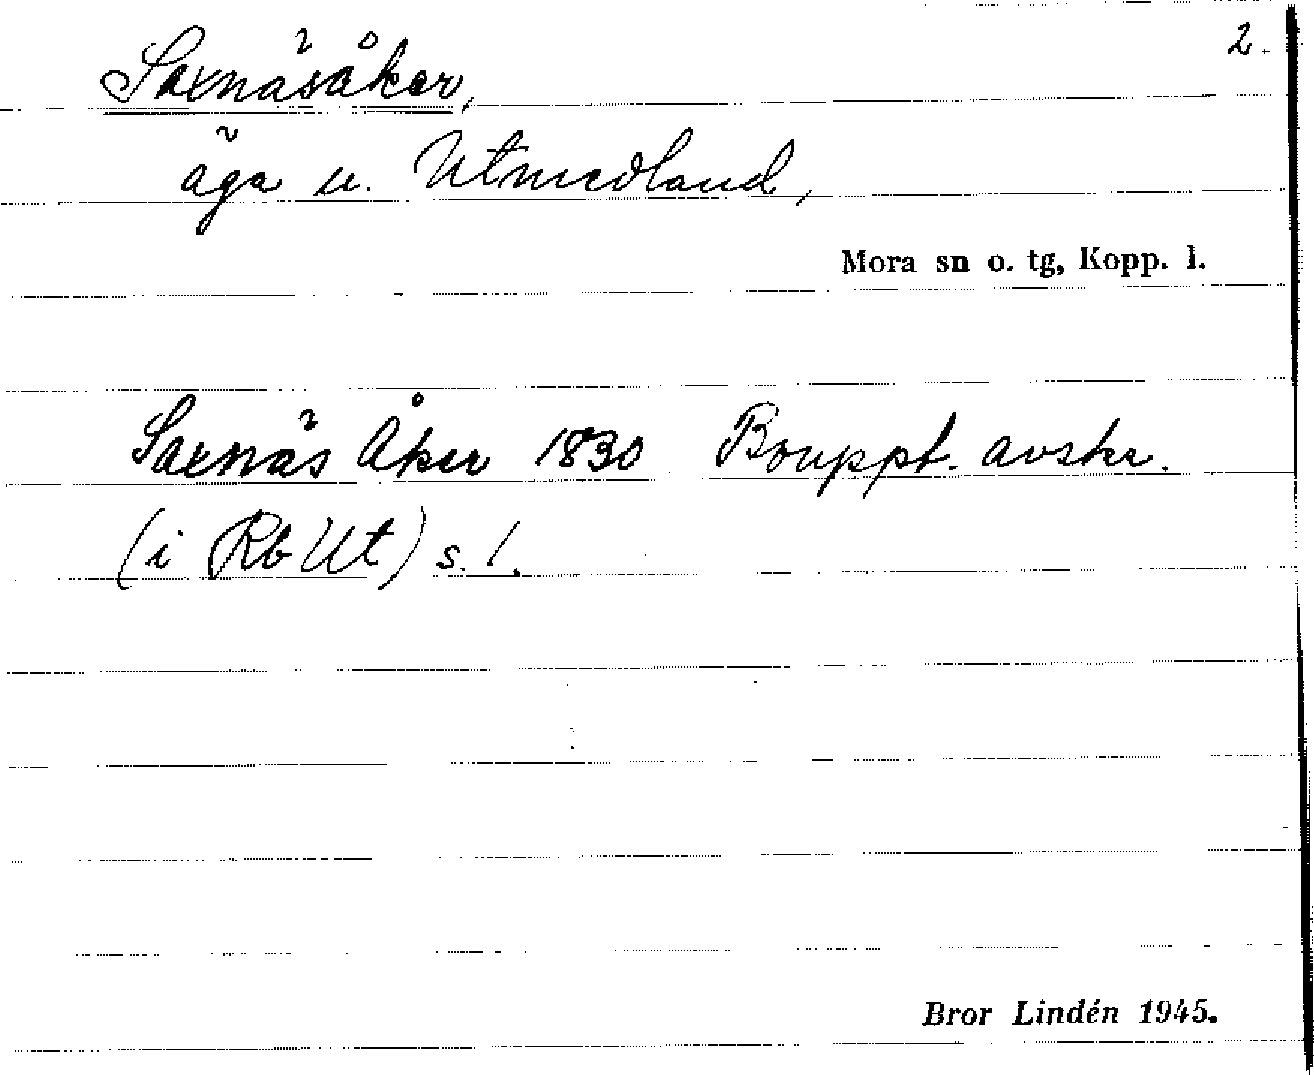 2.
Saxnäsåker,
äga u. Utmedland,
Mora sn o. tg, Kopp. l.
Saxnäs Åker 1830 Bouppt. avskr.
(i Rb Ut) s. 1.
Bror Lindén 1945.